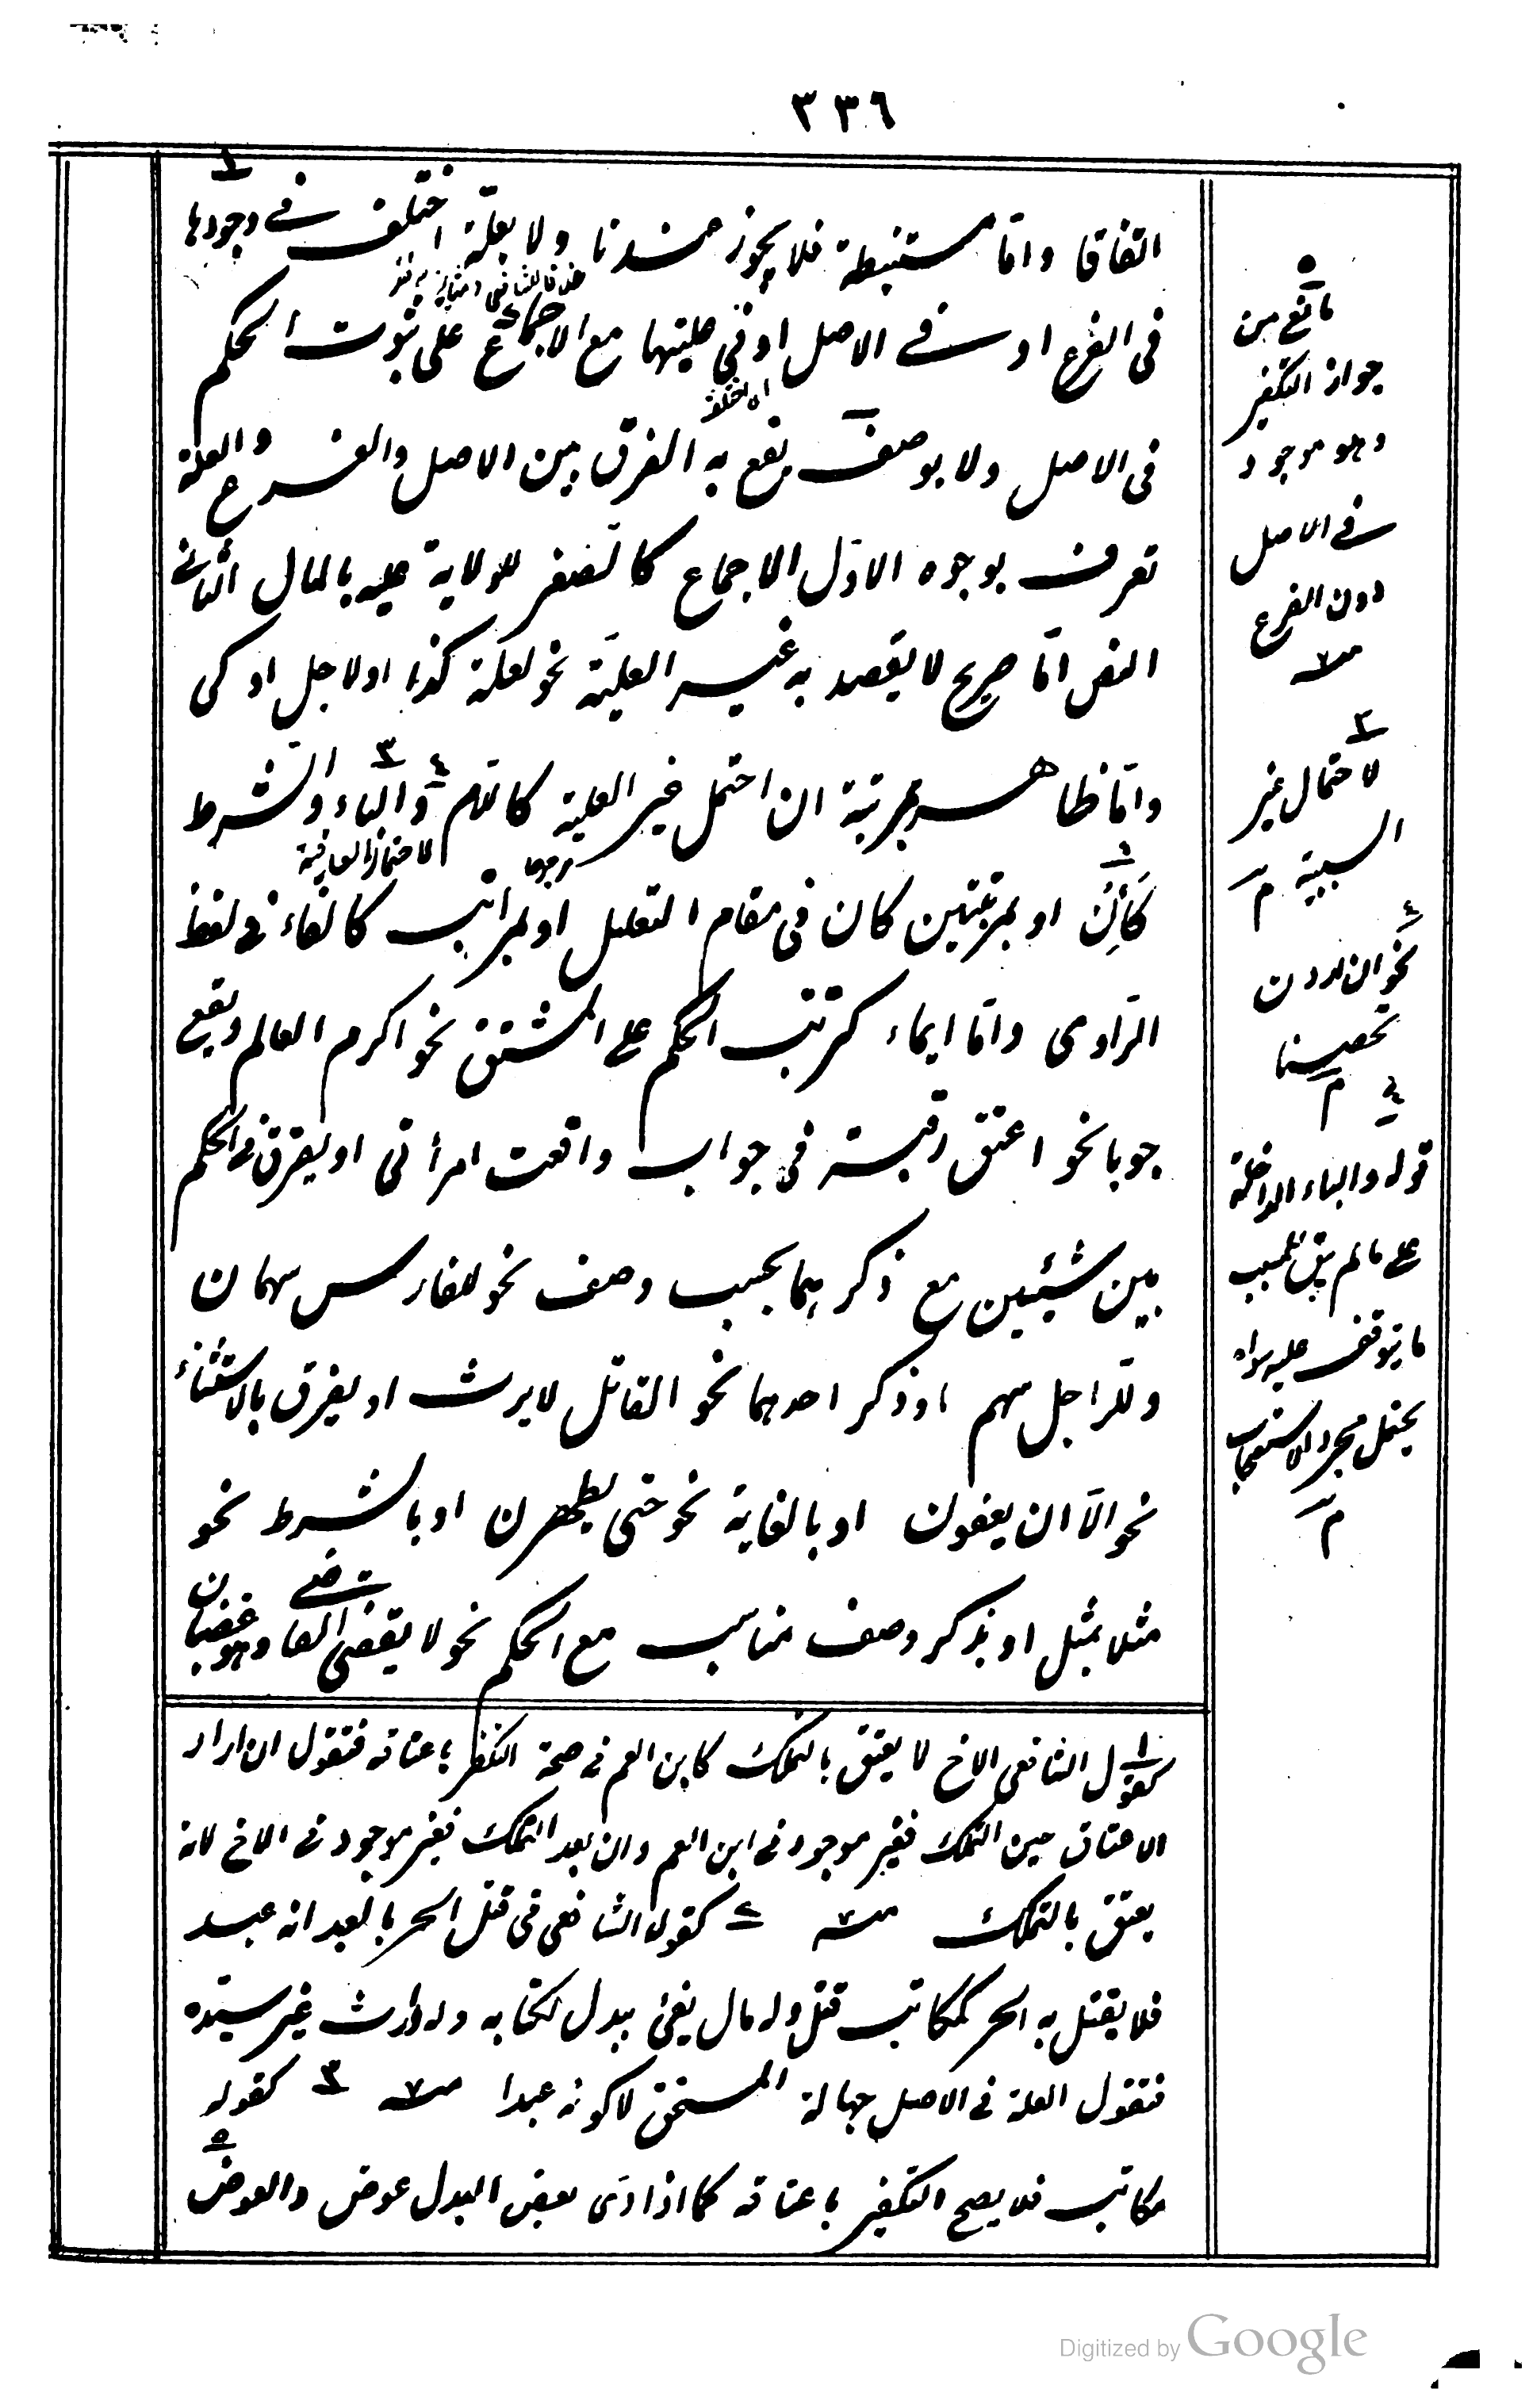 ٣٣٦
اتفاقا واما مستنبطة فلا يجوز عندنا ولا بعلّة اختلف فے وجودها
فى الفرع او فے الاصل او فى عليتها مع الاجماع على ثبوت الحكم
فى الاصل ولا بوصف يقع به الفرق بين الاصل والفرع والعلة
تعرف بوجوه الاوّل الاجماع كالصغر للولاية عليه بالمال الثانے
النص امّا صريح لا يقصد به غير العليّة نحو لعلة كذا او لاجل او كى
وامّا ظاهر بمرتبة ان احتمل غير العلية كاللام ٤ والباء ٣ والشرط
كَاِنْ او بمرتبتين كان فى مقام التعليل او بمراتب كالفاء فے لفظ
الرّاوى وامّا ايماء كترتب الحكم على المشتق نحو اكرم العالم ويقع
جوبا نحو اعتق رقبة فى جواب واقعت امرأتى او يفرق فے الحكم
بين شيئين مع ذكرهما بحسب وصف نحو للفارس سهمان
وللراجل سهم او ذكر احدهما نحو القاتل لا يرث او يفرق بالاستثناء
نحو الّا ان يعفون او بالغاية نحو حتى يطهرن او بالشرط نحو
مثلا بمثل او بذكر وصف مناسب مع الحكم نحو لا يقضى القاضے وهو غضبان
خلافا للشافعى
لاحتمال العاقبة
مانع من
جواز التكفير
وهو موجود
فے الاصل
دون الفرع
منه
٣
لاحتمال غير
السببية م
٤
نحو ان اردن
تحصنا
م
قوله والباء الداخلة
على ما لم يبق للمسبب
ما يتوقف عليه سواه
يحتمل مجرد الاستصحاب
م
١ كقول الشافعى الاخ لا يعتق بالتملك كابن العم فے صحة التكفير باعتاقه فنقول ان اراد
الاعتاق حين التملك فغير موجود فے ابن العم وان بعد التملك فغير موجود فے الاخ لانه
يعتق بالتملك منه ٢ كقول الشافعى فى قتل الحر بالعبد انه عبد
فلا يقتل به الحر كمكاتب قتل وله مال يفى ببدل الكتابة وله وارث غير سيّده
فنقول العلة فے الاصل جهالة المستحق لا كونه عبدا منه ٣ كقوله
مكاتب فلا يصح التكفير باعتاقه كما اذا ادّى بعض البدل عوض والعوض ٥
Digitized by Google